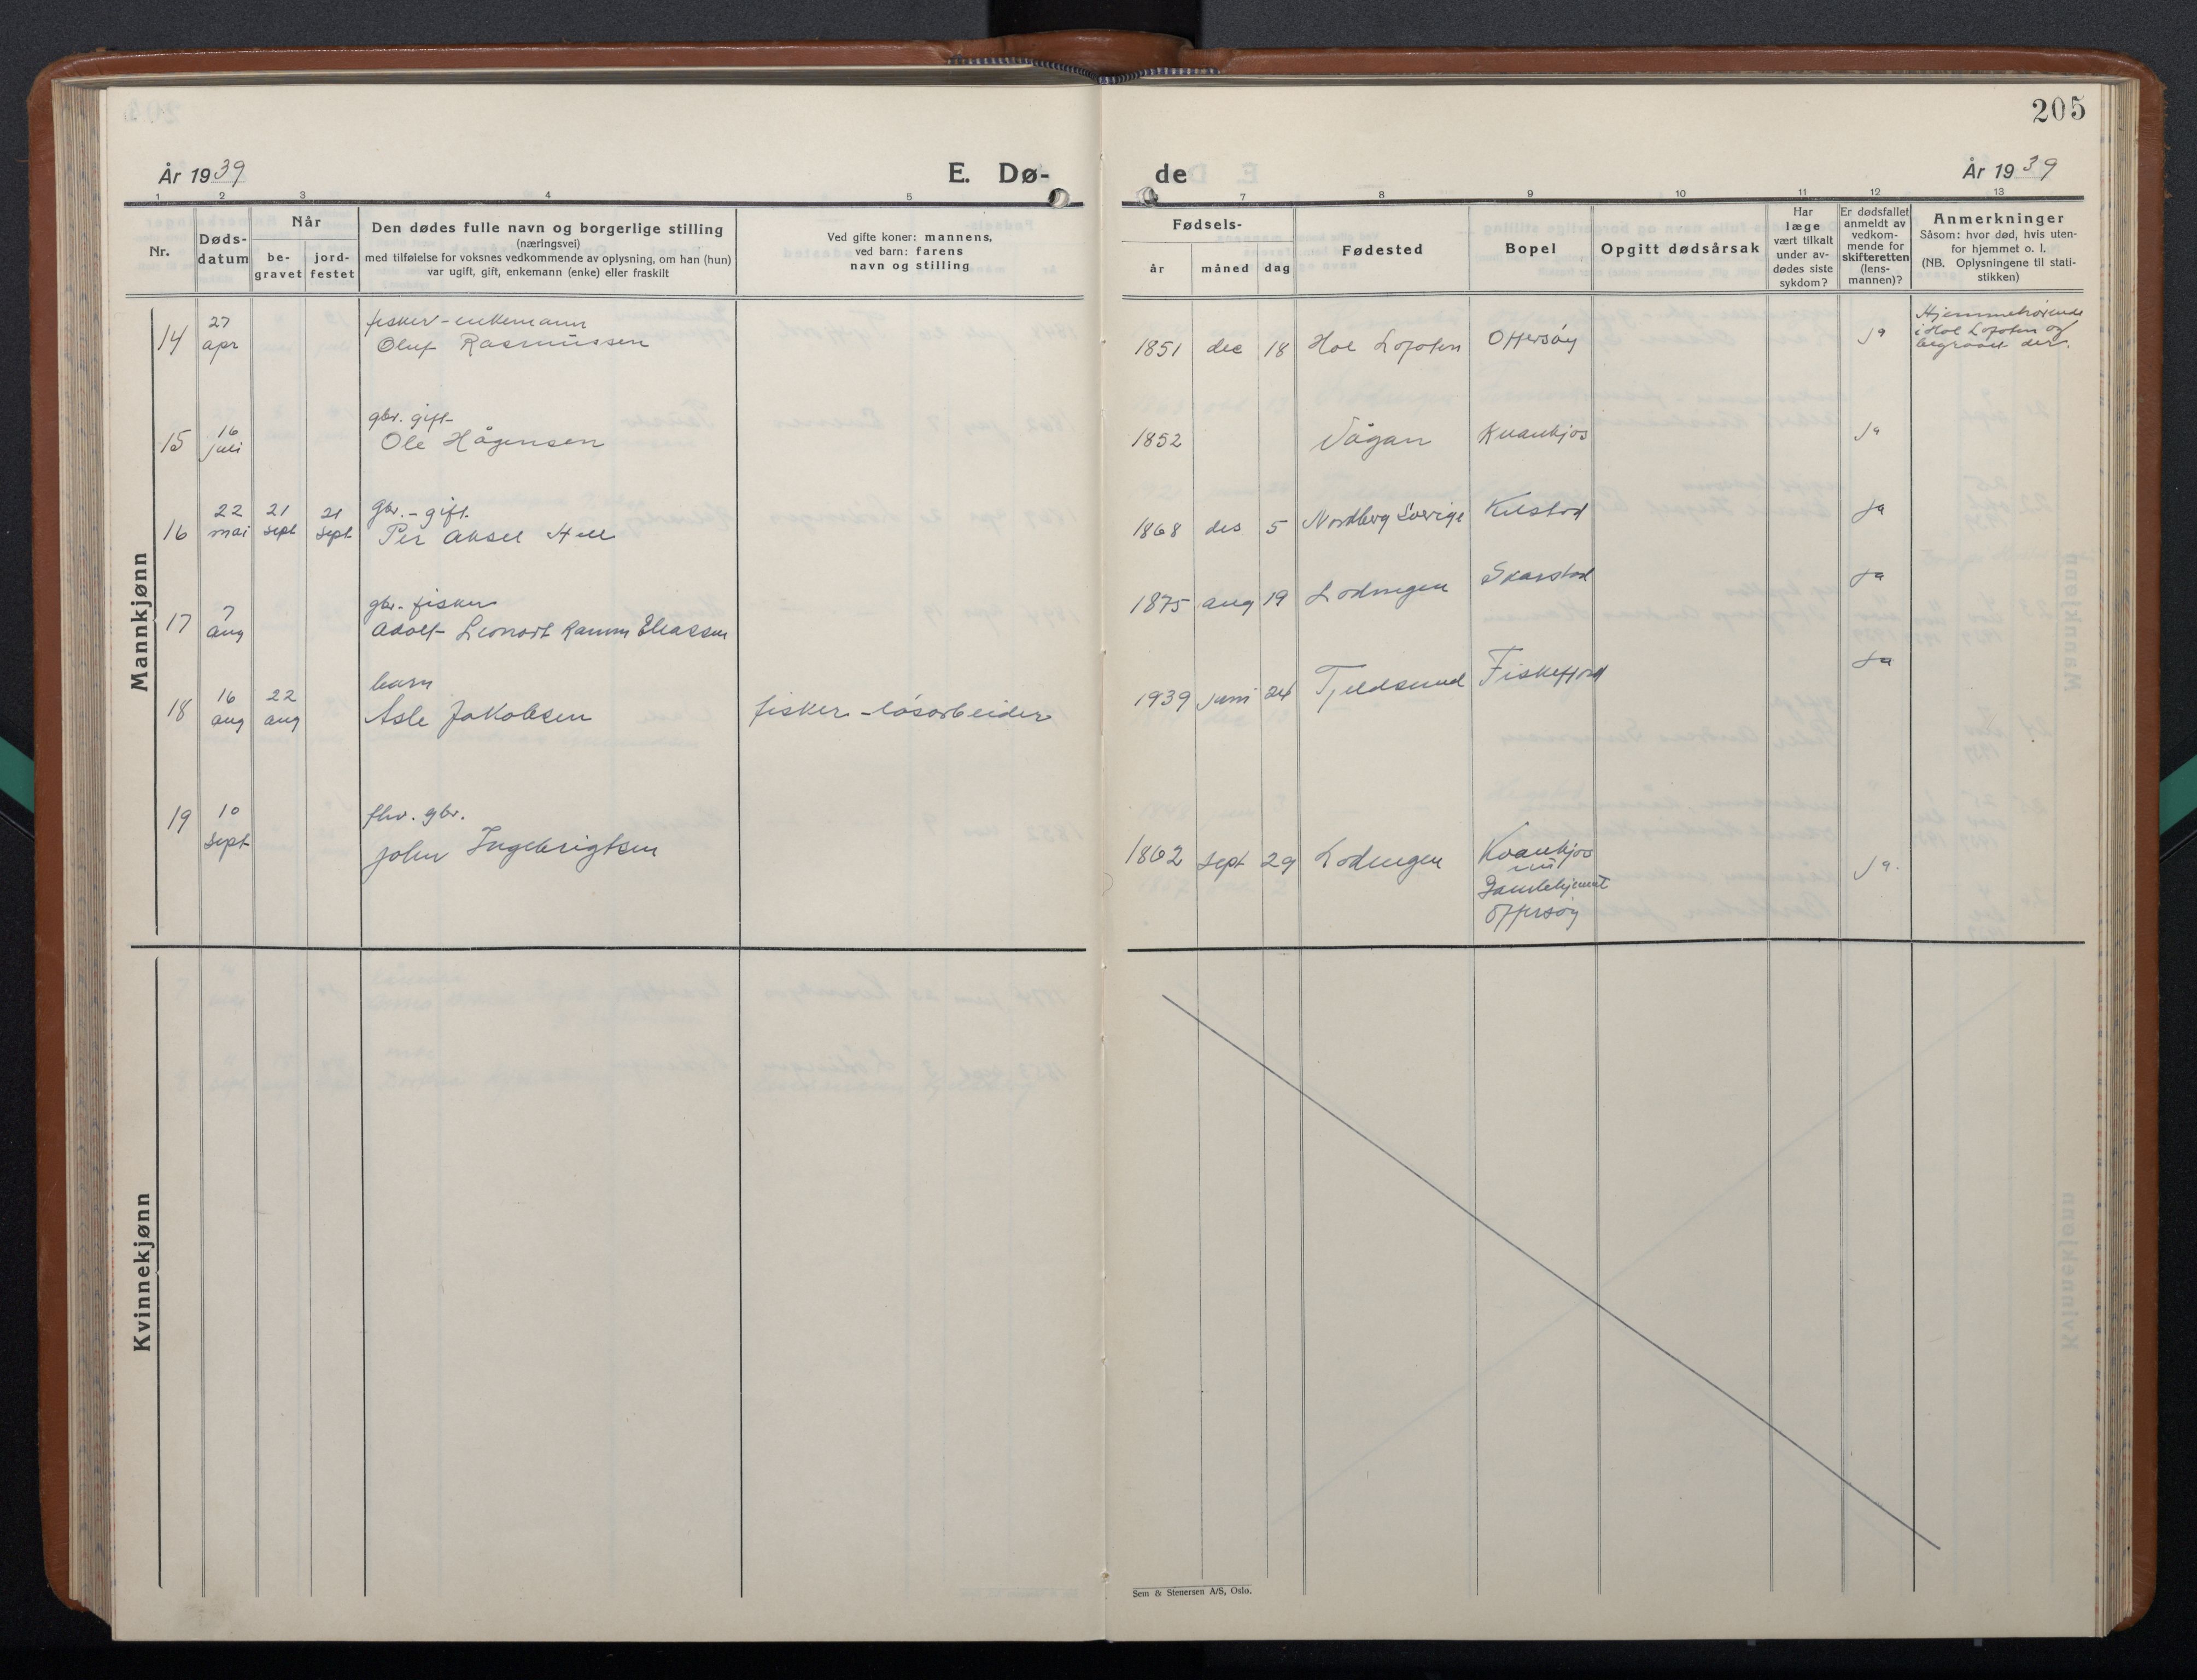 205
År 1939
E. Dø-
de
År 1939
1 2 3 4 5 7 8 9 10 11 12 13
Nr.
Døds-
datum
Når
be-
gravet
jord-
festet
Den dødes fulle navn og borgerlige stilling
(næringsvei)
med tilføielse for voksnes vedkommende av oplysning, om han (hun)
var ugift, gift, enkemann (enke) eller fraskilt
Ved gifte koner: mannens,
ved barn: farens
navn og stilling
Fødsels-
år måned dag
Fødested
Bopel
Opgitt dødsårsak
Har
læge
vært tilkalt
under av-
dødes siste
sykdom?
Er dødsfallet
anmeldt av
vedkom-
mende for
skifteretten
(lens-
mannen)?
Anmerkninger
Såsom: hvor død, hvis uten-
for hjemmet o. l.
(NB. Oplysningene til stati-
stikken)
Mannkjønn
14
27
apr
fisker - enkemann
Oluf Rasmussen
1851 dec 18 Hol Lofoten Offersøy
ja
Hjemmehørende
i Hol Lofoten og
begravet der.
15
16
juli
gbr. gift
Ole Hågensen
1852 Vågan Kvankjos
ja
16
22
mai
21
sept
21
sept
gbr. - gift
Per Aksel
1868 des 5 Nordberg Sverige Kilstad
ja
17
7
aug
gbr. fisker
Adolf Leonart Ramm Eliassen
1875 aug 19 Lødingen Skarstad
ja
18
16
aug
22
aug
barn
Asle Jakobsen
fisker - løsarbeider
1939 juni 24 Tjeldsund Fiskefjord
ja
19
10
sept
fhv. gbr.
John Ingebrigtsen
1862 sept 29 Lødingen Kvankjos
nu
Gamlehjemmet
Offersøy
ja.
Kvinnekjønn
Sem & Stenersen A/S, Oslo.